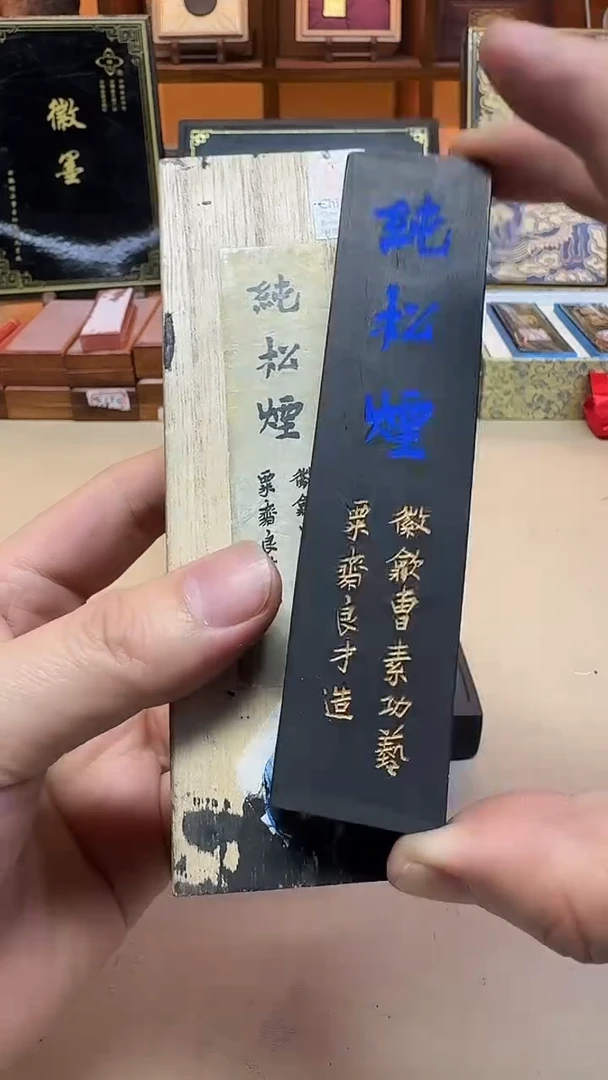 徽墨
純松煙
徽歙
粟齋良
純松煙
徽歙曹素功藝
粟齋良才造